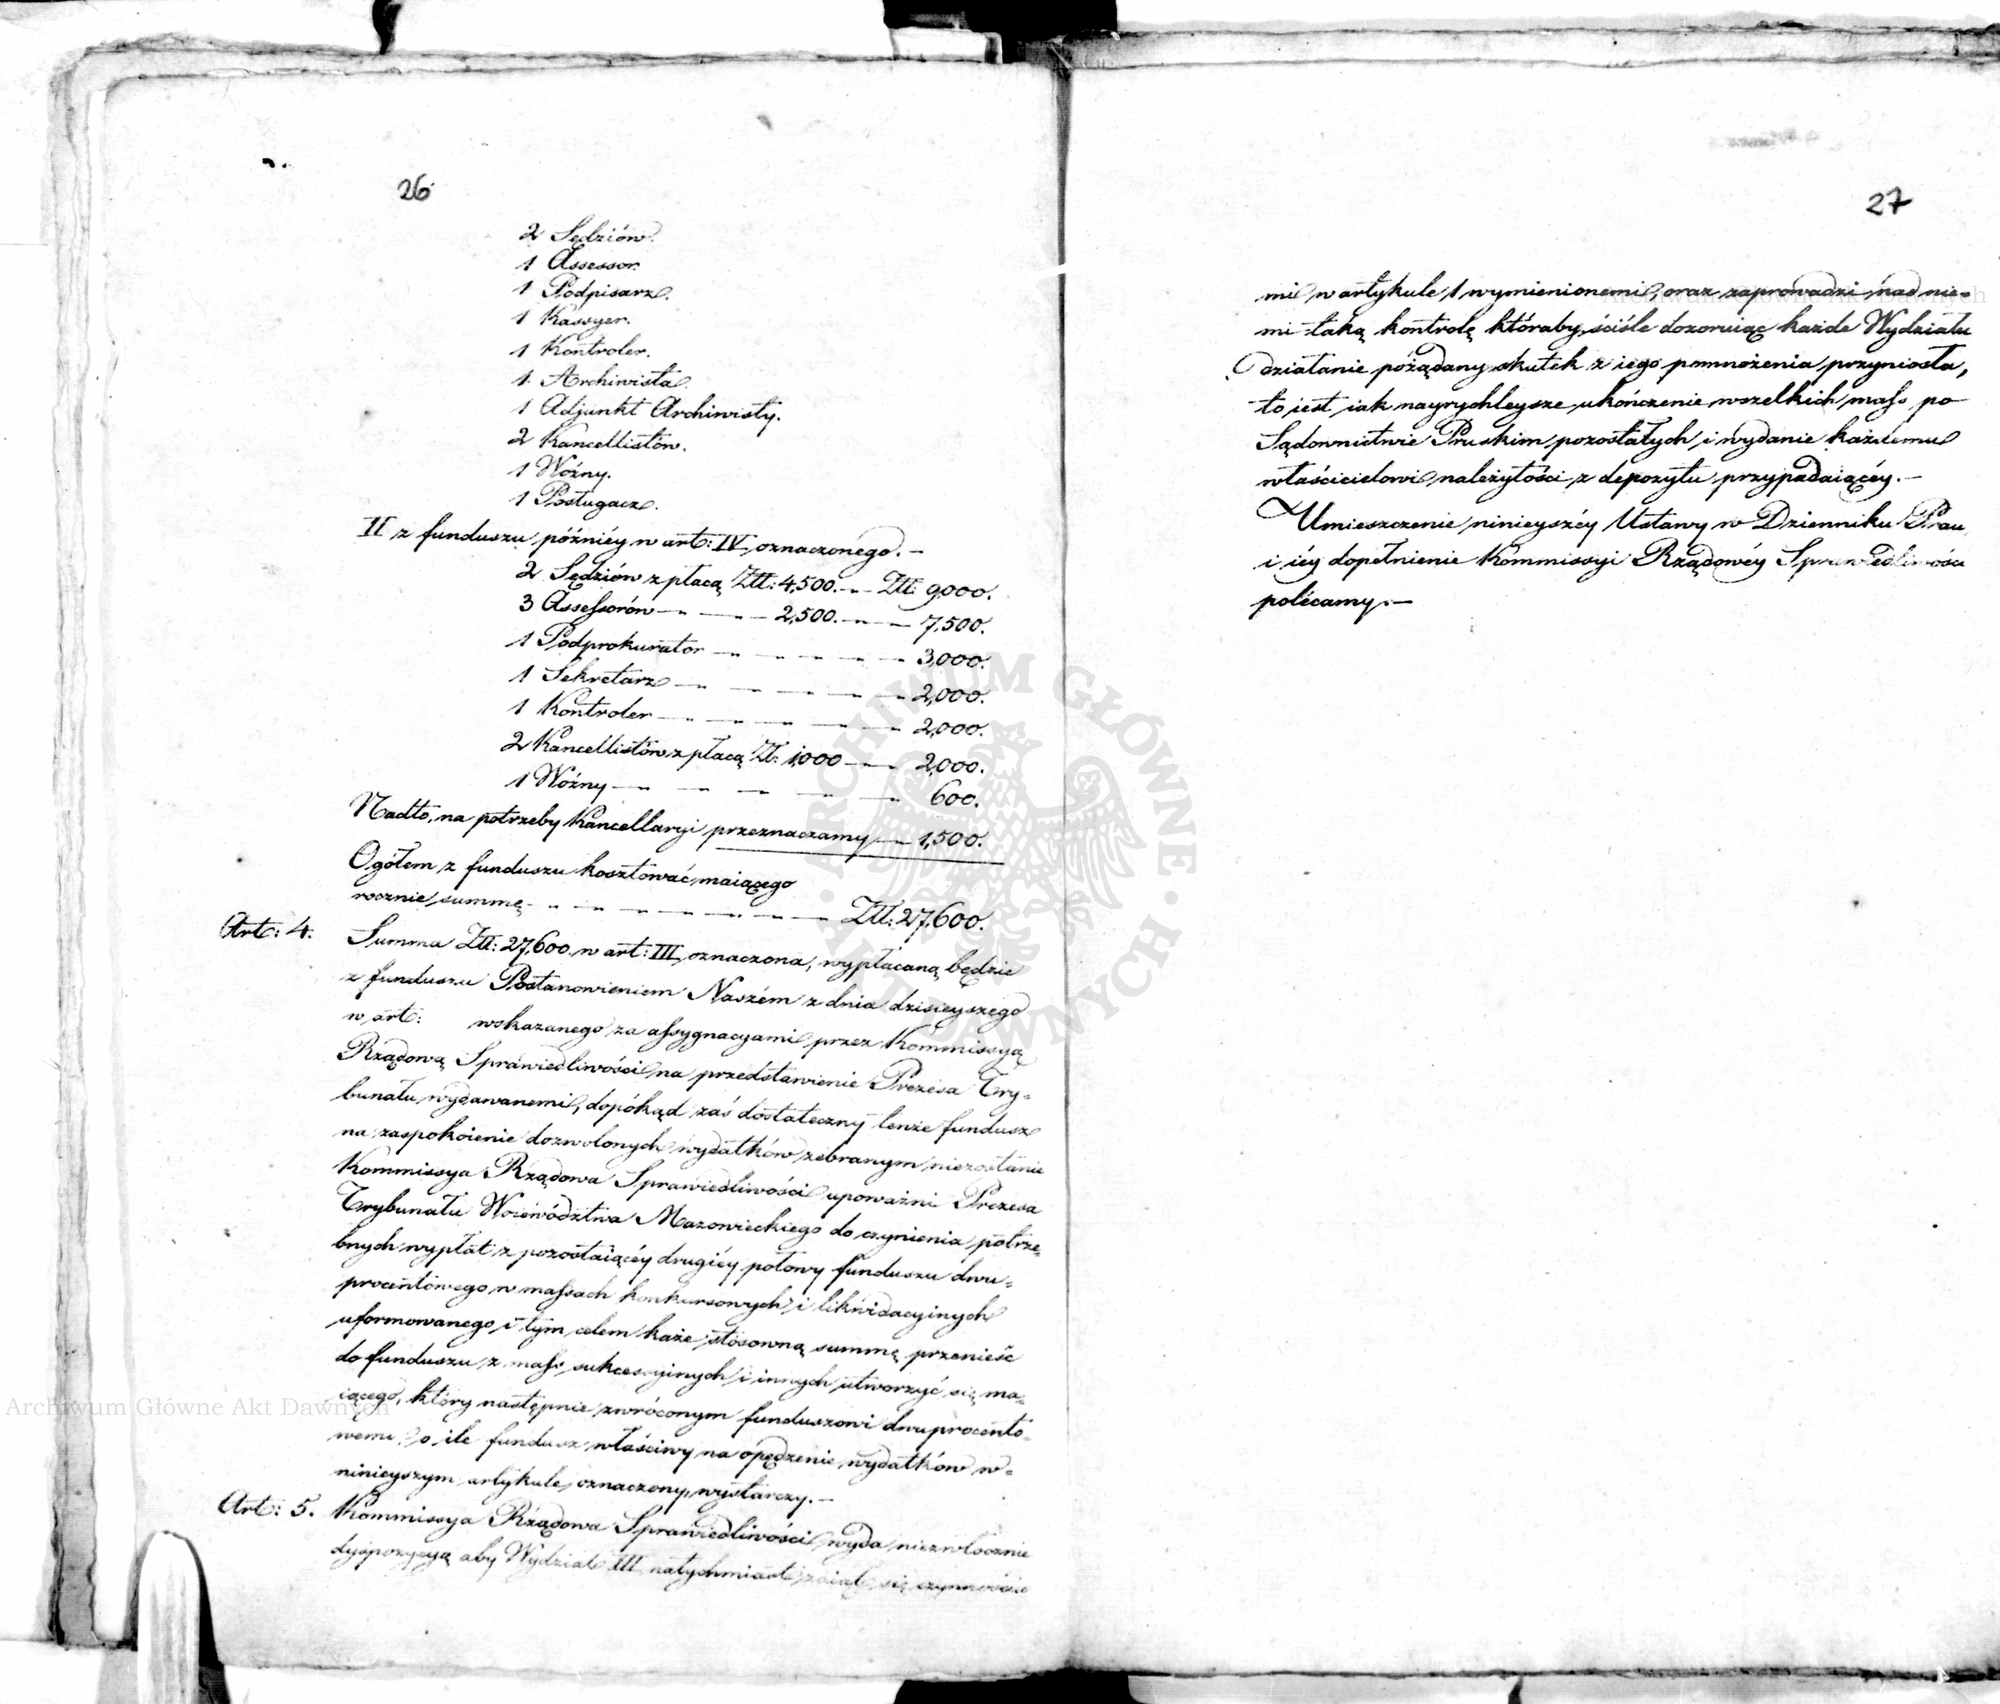 26
2 Sędziów.
1 Assessor.
1 Podpisarz.
1 Kassyer.
1 Kontroler.
1 Archiwista.
1 Adjunkt Archiwisty.
2 Kancellistów.
1 Woźny.
1 Posługacz.
II z funduszu późniéy w art: IV, oznaczonego. —
2 Sędziów z płacą Złł: 4,500. — Złł: 9,000.
3 Assessorów — — 2,500. — — 7,500.
1 Podprokurator — 3,000.
1 Sekretarz — 2,000.
1 Kontroler — 2,000.
2 Kancellistów z płacą Zł: 1,000 — 2,000.
1 Woźny — 600.
Nadto, na potrzeby Kancellaryi przeznaczamy — 1,500.
Ogółem z funduszu kosztować maiącego
rocznie summę — Złł: 27,600.
Art: 4. Summa Złł: 27,600 w art: III, oznaczona, wypłacaną będzie
z funduszu Postanowieniem Naszém z dnia dzisieyszego
w art: wskazanego za assygnacyami przez Kommissyą
Rządową Sprawiedliwości na przedstawienie Prezesa Try=
bunału wydawanemi, dopókąd zaś dostateczny tenże fundusz
na zaspokoienie dozwolonych wydatków zebranym niezostanie
Kommissya Rządowa Sprawiedliwości upoważni Prezesa
Trybunału Woiewództwa Mazowieckiego do czynienia potrze=
bnych wypłat z pozostaiącéy drugiéy połowy funduszu dwu=
procentowego w massach konkursowych i likwidacyinych
uformowanego, i tym celem każe stosowną summę przenieść
do funduszu z mass sukcessyinych i innych utworzyć się ma=
iącego, który następnie zwróconym funduszowi dwuprocento=
wemu o ile fundusz właściwy na opędzenie wydatków w=
ninieyszym artykule, oznaczony, wystarczy. —
Art: 5. Kommissya Rządowa Sprawiedliwości wyda niezwłocznie
dyspozycyą aby Wydział III natychmiast zaiął się czynnościa
27
mi w artykule 1 wymienionemi, oraz zaprowadzi nad nie=
mi taką kontrolę któraby ściśle dozoruiąc każde Wydziału
działanie pożądany skutek z iego pomnożenia przyniosła,
to iest iak nayrychleysze ukończenie wszelkich mass po
Sądownictwie Pruskim pozostałych, i wydanie każdemu
właścicielowi należytości z depozytu przypadaiącéy. —
Umieszczenie ninieyszéy Ustawy w Dzienniku Praw
i iéy dopełnienie Kommissyi Rządowéy Sprawiedliwości
polécamy. —
ARCHIWUM GŁÓWNE AKT DAWNYCH
Archiwum Główne Akt Dawnych
Archiwum Główne Akt Dawnych